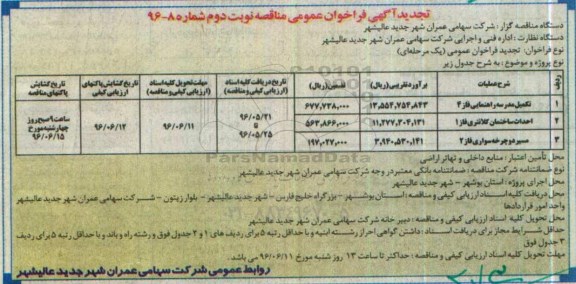 تجدید آگهی فراخوان عمومی مناقصه نوبت دوم شماره ۸-۹۶
دستگاه مناقصه گزار: شرکت سهامی عمران شهر جدید عالیشهر
دستگاه نظارت: اداره فنی و اجرایی شرکت سهامی عمران شهر جدید عالیشهر
نوع فراخوان: تجدید فراخوان عمومی (یک مرحله‌ای)
نوع پروژه و موضوع: به شرح جدول زیر
ردیف شرح عملیات برآورد تقریبی (ریال) تضمین (ریال) تاریخ دریافت کلیه اسناد (ارزیابی کیفی و مناقصه) مهلت تحویل کلیه اسناد (ارزیابی کیفی و مناقصه) تاریخ گشایش پاکتهای ارزیابی کیفی تاریخ گشایش پاکتهای مناقصه
۱ تکمیل مدرسه راهنمایی فاز ۴ ۱۳,۵۵۴,۷۵۴,۸۴۳ ۶۷۷,۷۳۸,۰۰۰ ۹۶/۰۵/۲۱ تا ۹۶/۰۵/۲۵ ۹۶/۰۶/۱۱ ۹۶/۰۶/۱۲ ساعت ۹ صبح روز چهارشنبه مورخ ۹۶/۰۶/۱۵
۲ احداث ساختمان کلانتری فاز ۱ ۱۱,۲۷۷,۳۰۴,۱۳۱ ۵۶۳,۸۶۶,۰۰۰
۳ مسیر دوچرخه سواری فاز ۲ ۳,۹۴۰,۵۳۰,۱۴۱ ۱۹۷,۰۲۷,۰۰۰
محل تأمین اعتبار: منابع داخلی و تهاتر اراضی
نوع ضمانتنامه شرکت مناقصه: ضمانتنامه بانکی معتبر در وجه شرکت سهامی عمران شهر جدید عالیشهر
محل اجرای پروژه: استان بوشهر - شهر جدید عالیشهر
محل دریافت کلیه اسناد ارزیابی کیفی و مناقصه: استان بوشهر - بزرگراه خلیج فارس - شهر جدید عالیشهر - بلوار زیتون - شرکت سهامی عمران شهر جدید عالیشهر
واحد امور قراردادها
محل تحویل کلیه اسناد ارزیابی کیفی و مناقصه: دبیر خانه شرکت سهامی عمران شهر جدید عالیشهر
حداقل شرایط مجاز برای دریافت اسناد: داشتن گواهی احراز رشته ابنیه و با حداقل رتبه ۵ برای ردیف های ۱ و ۲ جدول فوق و رشته راه و باند و با حداقل رتبه ۵ برای ردیف
۳ جدول فوق
مهلت تحویل کلیه اسناد ارزیابی کیفی و مناقصه: حداکثر تا ساعت ۱۳ روز شنبه مورخ ۹۶/۰۶/۱۱ می باشد.
روابط عمومی شرکت سهامی عمران شهر جدید عالیشهر
ParsNamadData